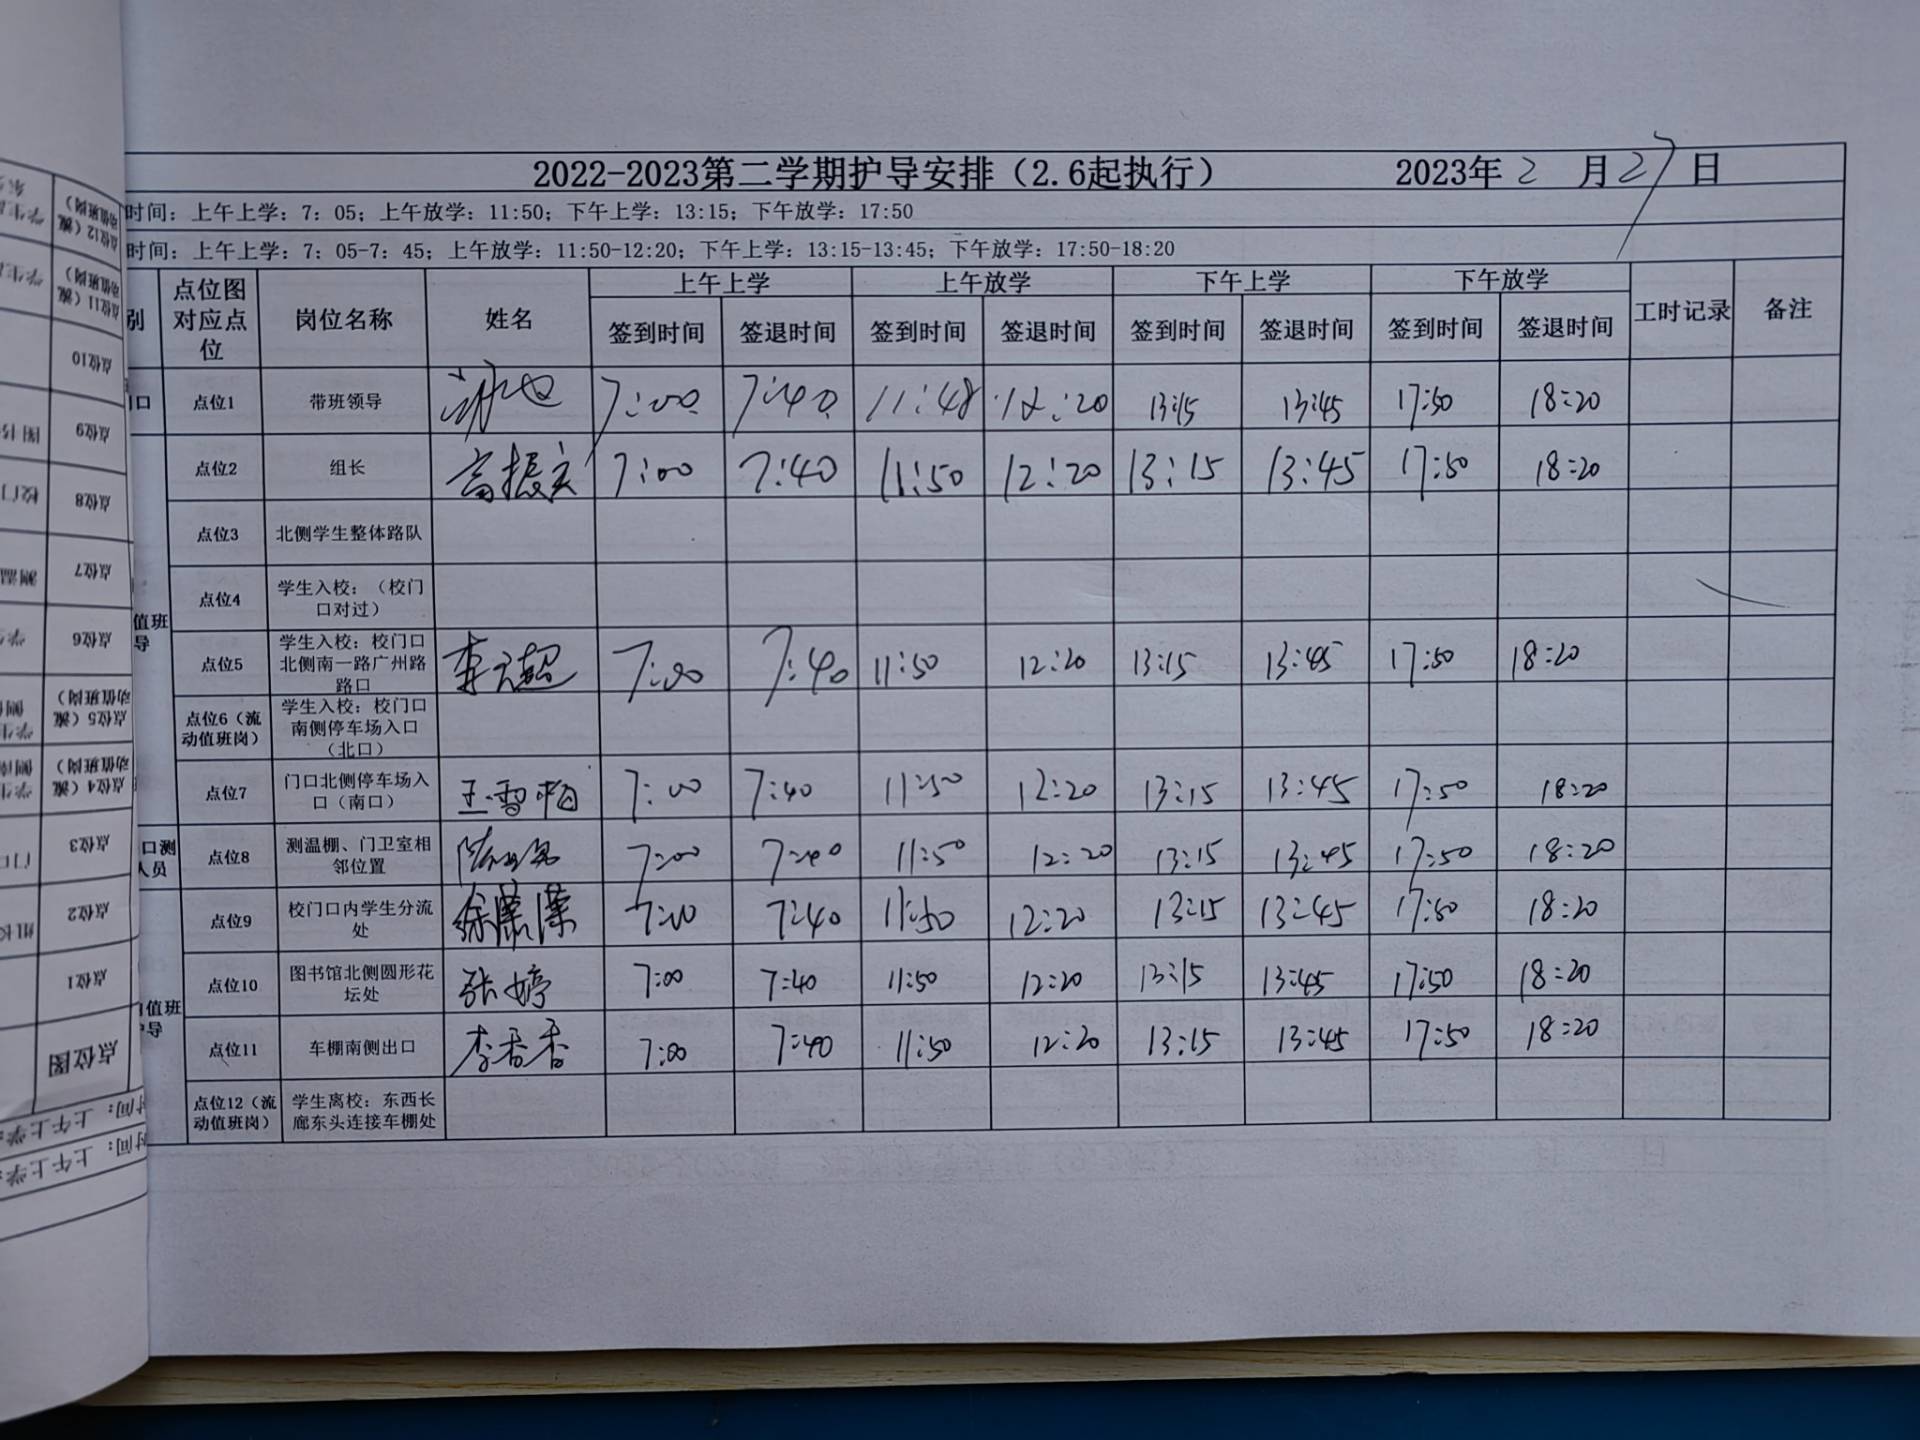 2022-2023第二学期护导安排（2.6起执行） 2023年 2 月 27 日
时间：上午上学：7：05；上午放学：11:50；下午上学：13:15；下午放学：17:50
时间：上午上学：7：05-7：45；上午放学：11:50-12:20；下午上学：13:15-13:45；下午放学：17:50-18:20
别 点位图对应点位 岗位名称 姓名 上午上学 上午放学 下午上学 下午放学 工时记录 备注
签到时间 签退时间 签到时间 签退时间 签到时间 签退时间 签到时间 签退时间
口 点位1 带班领导 7:00 7:40 11:48 12:20 13:15 13:45 17:50 18:20
点位2 组长 高振宏 7:00 7:40 11:50 12:20 13:15 13:45 17:50 18:20
点位3 北侧学生整体路队
点位4 学生入校：（校门口对过）
值班导
点位5 学生入校：校门口北侧南一路广州路路口 李元超 7:00 7:40 11:50 12:20 13:15 13:45 17:50 18:20
点位6（流动值班岗） 学生入校：校门口南侧停车场入口（北口）
点位7 门口北侧停车场入口（南口） 王雪柏 7:00 7:40 11:50 12:20 13:15 13:45 17:50 18:20
口测人员 点位8 测温棚、门卫室相邻位置 7:00 7:40 11:50 12:20 13:15 13:45 17:50 18:20
点位9 校门口内学生分流处 徐潇潇 7:00 7:40 11:50 12:20 13:15 13:45 17:50 18:20
点位10 图书馆北侧圆形花坛处 张婷 7:00 7:40 11:50 12:20 13:15 13:45 17:50 18:20
值班导 点位11 车棚南侧出口 李香香 7:00 7:40 11:50 12:20 13:15 13:45 17:50 18:20
点位12（流动值班岗） 学生离校：东西长廊东头连接车棚处
点位12（流动值班岗）
点位11（流动值班岗）
点位10
点位9 图书
点位8 校门
点位7 测温
点位6 学生
点位5（流动值班岗）
点位4（流动值班岗）
点位3 门口
点位2 组长
点位1
点位图
时间：上午上学：
时间：上午上学：